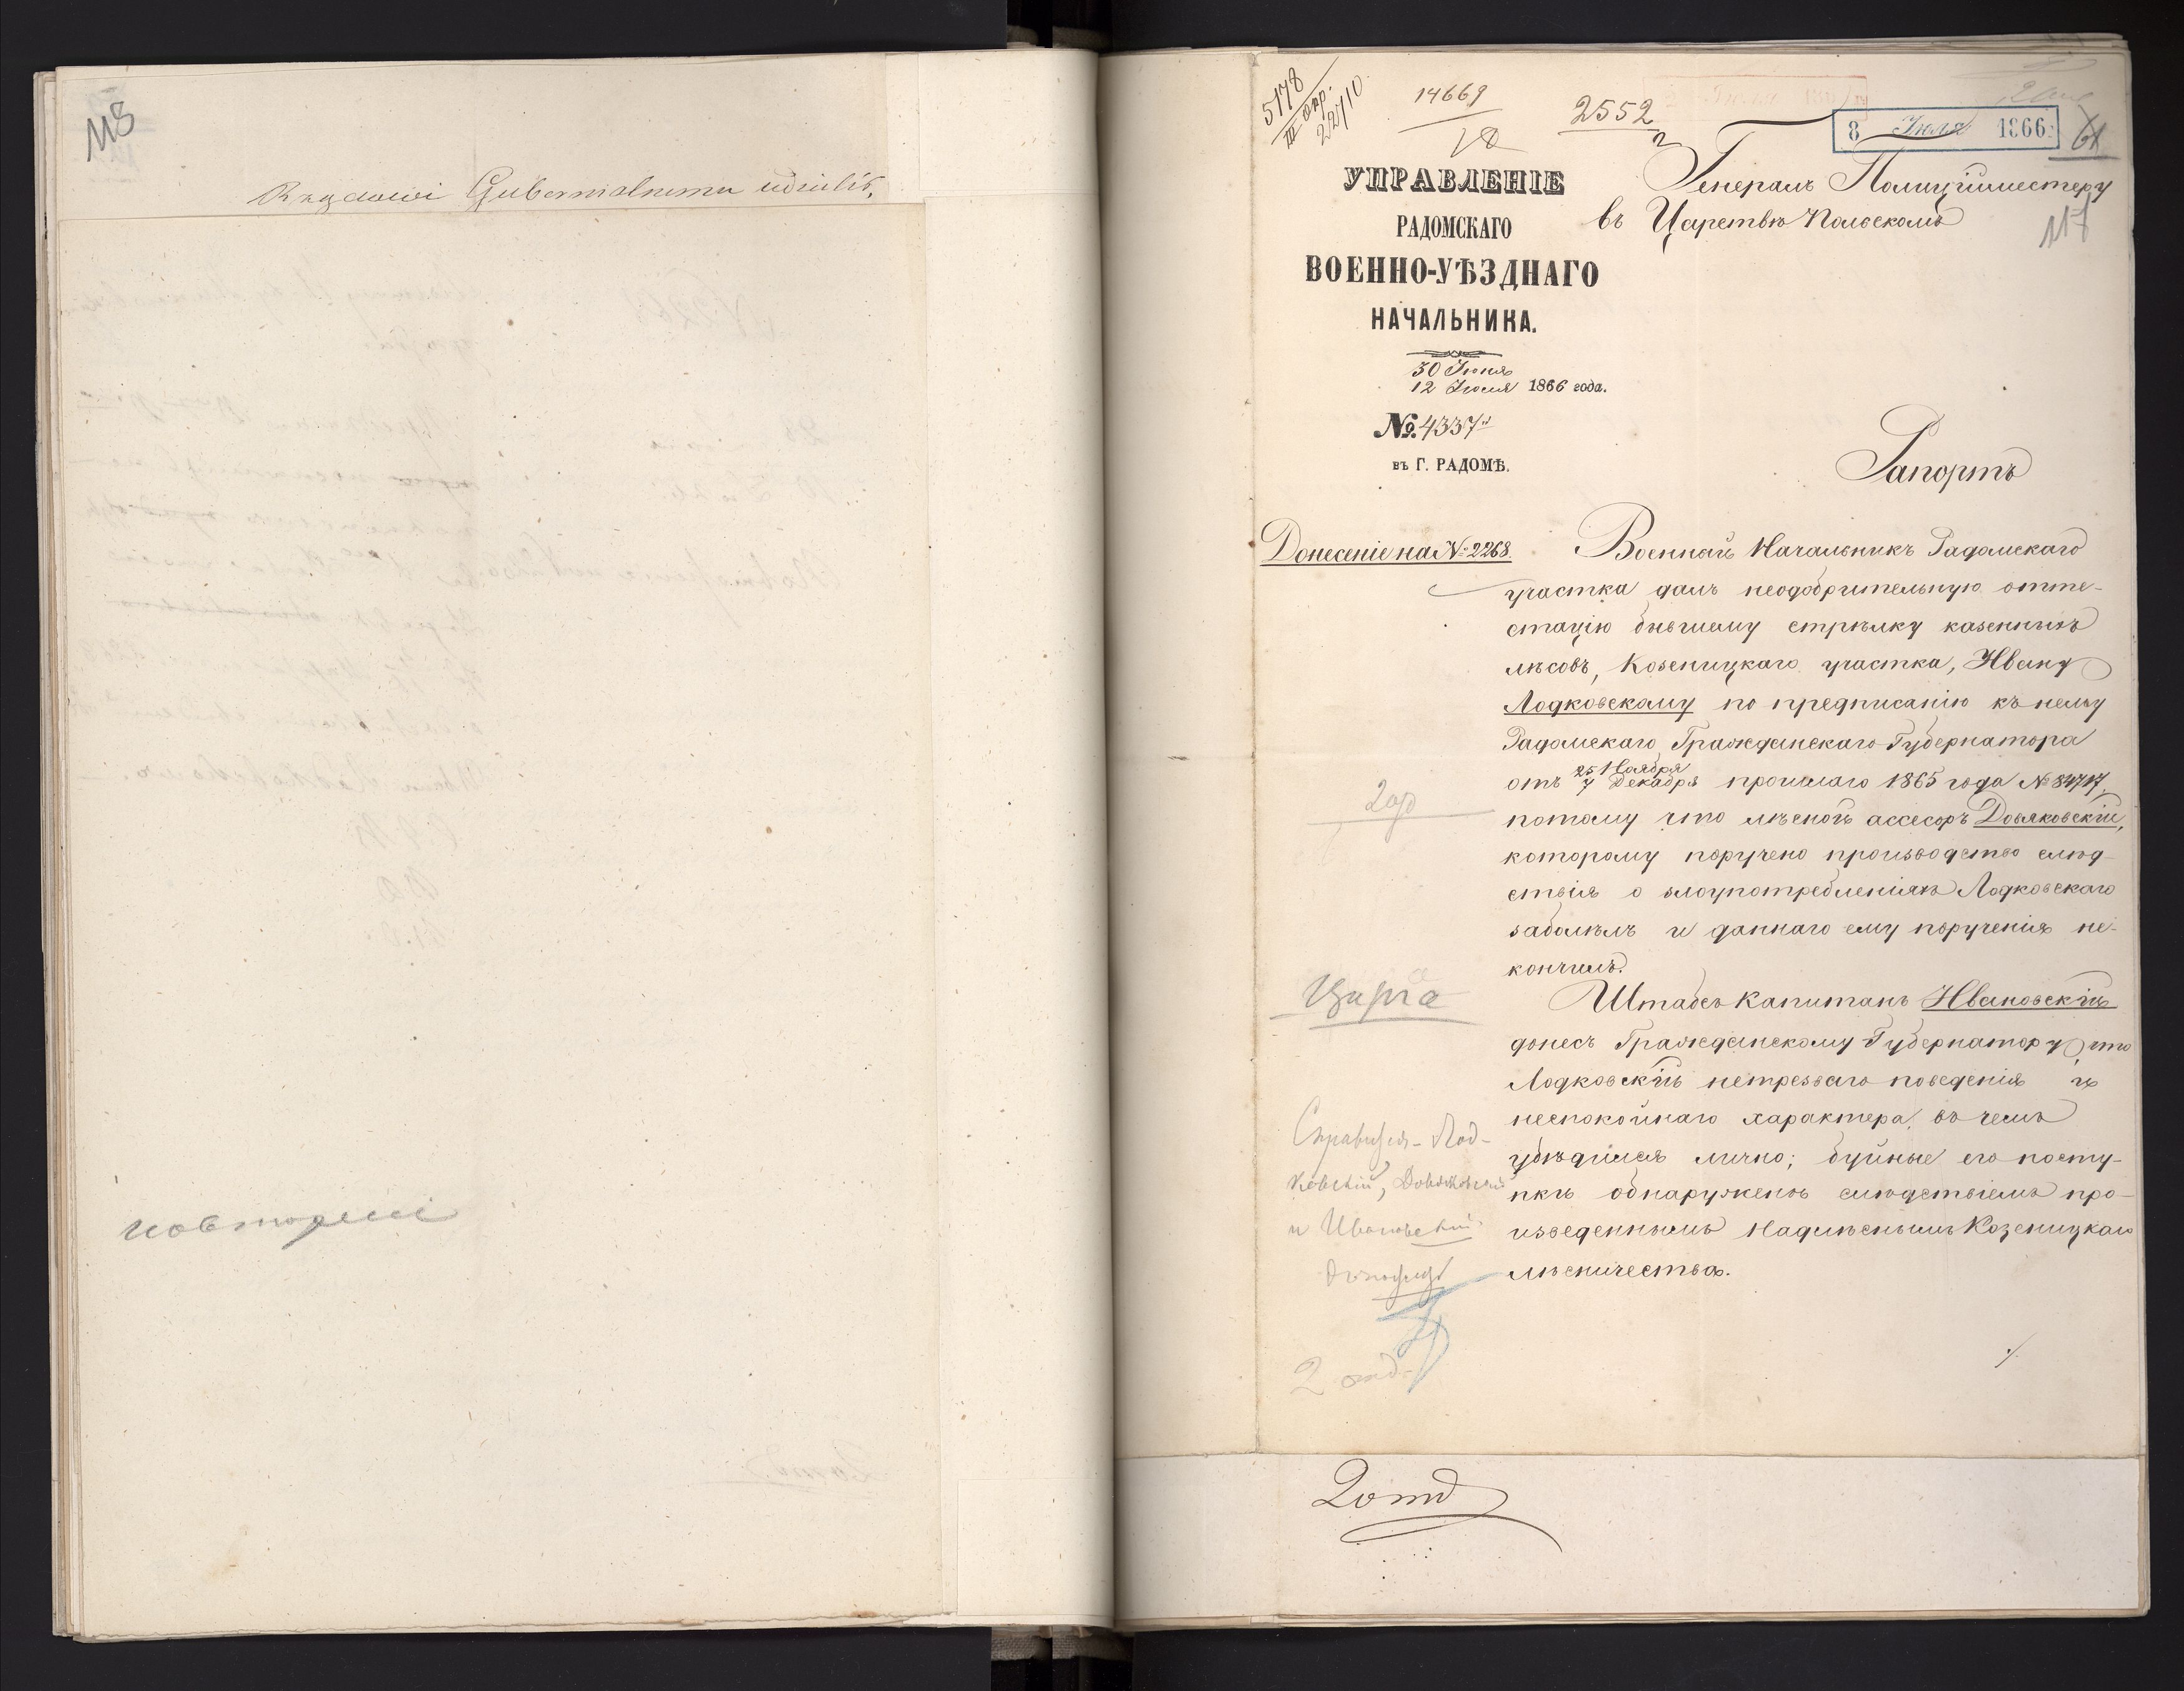 118
Rządowi Gubernialnemu udzielić.
повтореніе
5178
III отр.
22/10
14669
2552
8 Іюля 1866
61
117
УПРАВЛЕНІЕ
РАДОМСКАГО
ВОЕННО-УѢЗДНАГО
НАЧАЛЬНИКА.
30 Іюня
12 Іюля 1866 года.
№ 4337
въ Г. РАДОМѢ.
Генералъ Полиціймейстеру
въ Царствѣ Польскомъ
Рапортъ
Донесеніе на № 2268.
Военный Начальникъ Радомскаго
участка далъ неодобрительную атте-
стацію бывшему стрѣлку казенныхъ
лѣсовъ, Козеницкаго участка, Ивану
Лодковскому по предписанію къ нему
Радомскаго Гражданскаго Губернатора
отъ 25 Ноября / 7 Декабря прошлаго 1865 года № 84717,
потому что лѣсной ассесоръ Довяковскій,
которому поручено производство слѣд-
ствія о злоупотребленіяхъ Лодковскаго
заболѣлъ и даннаго ему порученія не-
кончилъ.
Штабсъ Капитанъ Ивановскій
донесъ Гражданскому Губернатору, что
Лодковскій нетрезваго поведенія и
неспокойнаго характера, въ чемъ
убѣдился лично; буйные его посту-
пки обнаружены слѣдствіемъ про-
изведеннымъ Надлѣснымъ Козеницкаго
лѣсничества.
Лод-
ковскій, Довяковскій
и Ивановскій
2 отд.
2 отд